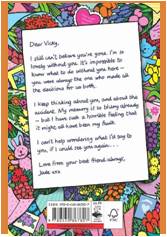 Dear Vicky,
I still can't believe you're gone. I'm so
lonely without you. It's impossible to
know what to do without you here –
you were always the one who made all
the decisions for us both.
I keep thinking about you, and about the
accident. My memory of it is so blurry
– but I have such a horrible feeling that
it might all have been my fault.
I can't help wondering what I'd say to
you, if I could see you again . . .
Love from your best friend always,
Jade xxx